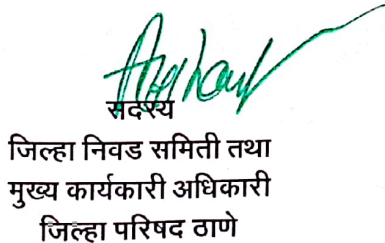 सदस्य
जिल्हा निवड समिती तथा
मुख्य कार्यकारी अधिकारी
जिल्हा परिषद ठाणे